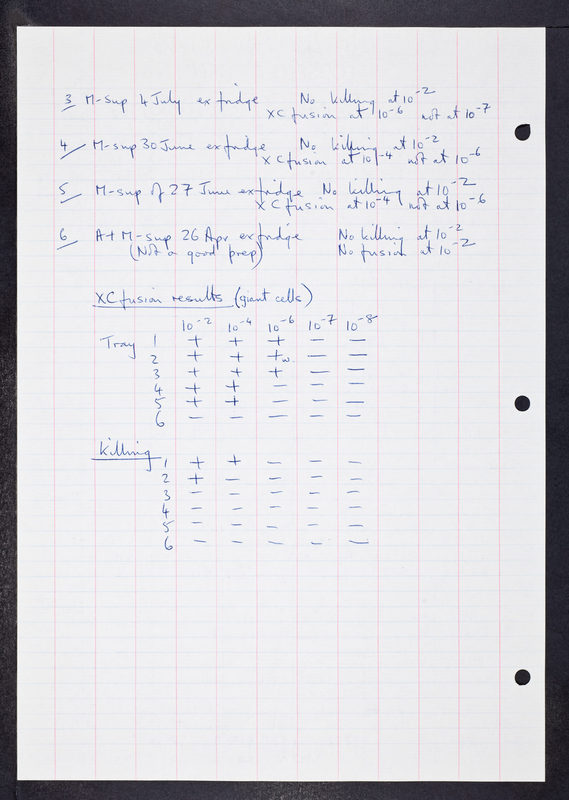 3 M-sup 4 July ex fridge No killing at 10⁻²
XC fusion at 10⁻⁶ not at 10⁻⁷
4 M-sup 30 June ex fridge No killing at 10⁻²
XC fusion at 10⁻⁴ not at 10⁻⁶
5 M-sup of 27 June ex fridge No killing at 10⁻²
XC fusion at 10⁻⁴ not at 10⁻⁶
6 A+M-sup 26 Apr ex fridge No killing at 10⁻²
(Not a good prep) No fusion at 10⁻²
XC fusion results (giant cells)
10⁻² 10⁻⁴ 10⁻⁶ 10⁻⁷ 10⁻⁸
Tray 1 + + + — —
2 + + +w — —
3 + + + — —
4 + + — — —
5 + + — — —
6 — — — — —
Killing
1 + + — — —
2 + — — — —
3 — — — — —
4 — — — — —
5 — — — — —
6 — — — — —